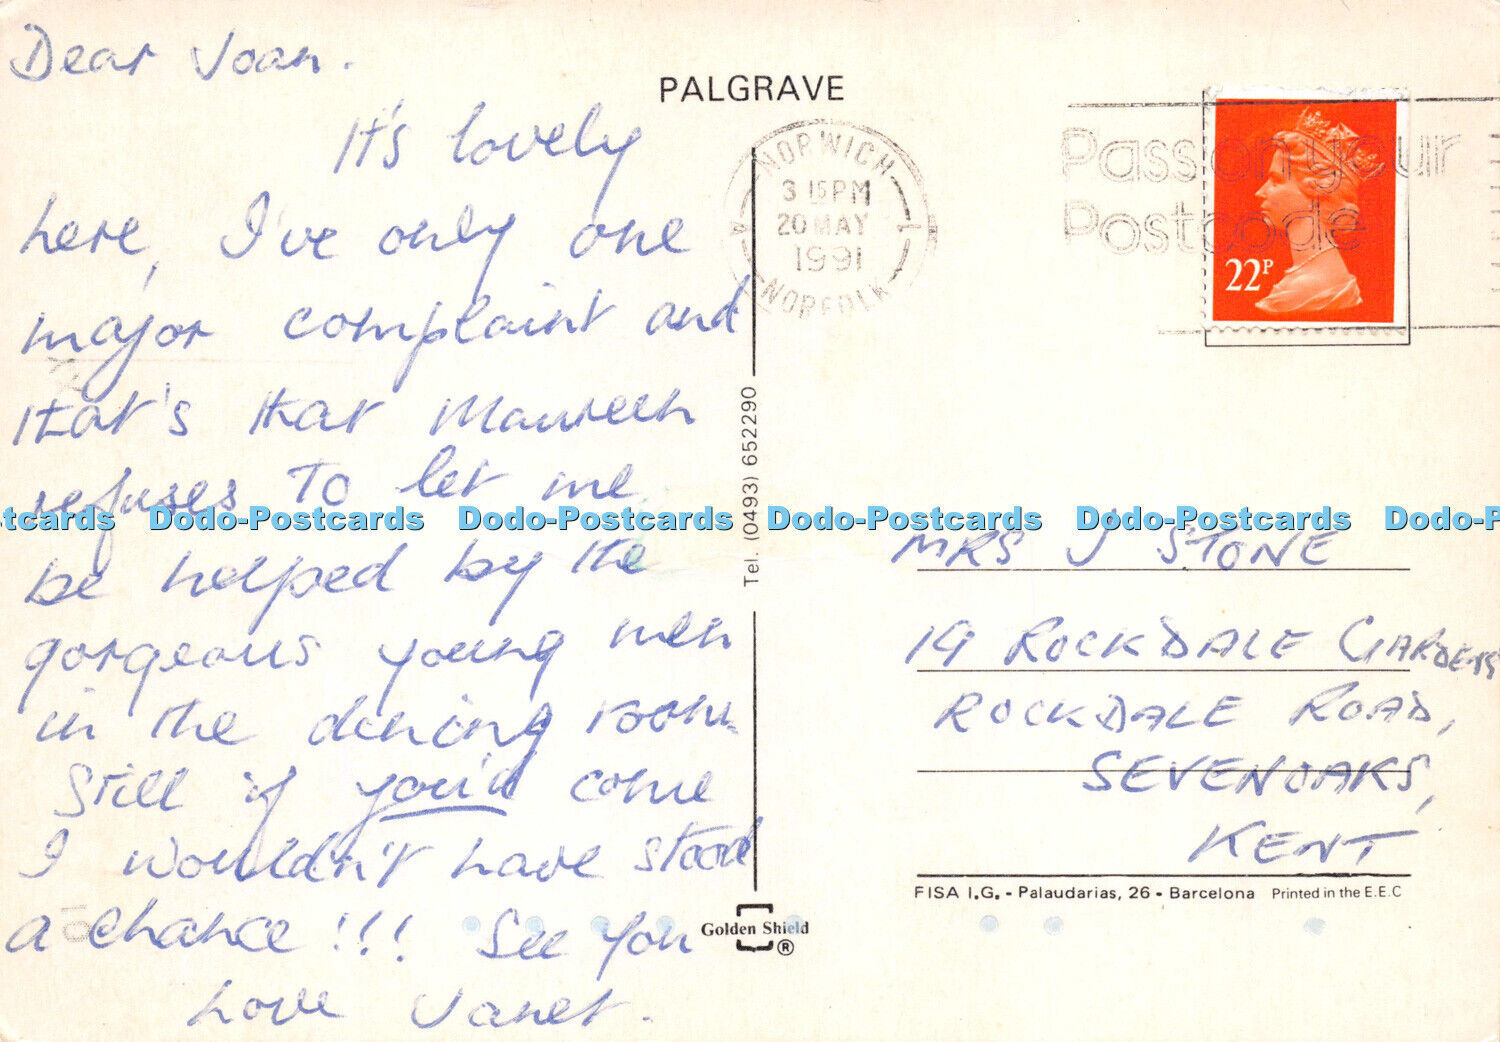 Dear Joan.
It's lovely
here, I've only one
major complaint and
that's that Maureen
refuses to let me
be helped by the
gorgeous young men
in the dining room.
Still if you'd come
I wouldn't have stood
a chance!!! See you
Love Janet.
PALGRAVE
NORWICH
3 15PM
20 MAY
1991
NORFOLK
Pass on your
Postcode
22P
Tel. (0493) 652290
tcards Dodo-Postcards Dodo-Postcards Dodo-Postcards Dodo-Postcards Dodo-P
MRS J STONE
19 ROCKDALE GARDENS
ROCKDALE ROAD,
SEVENOAKS,
KENT
FISA I.G. - Palaudarias, 26 - Barcelona Printed in the E.E.C
Golden Shield
®